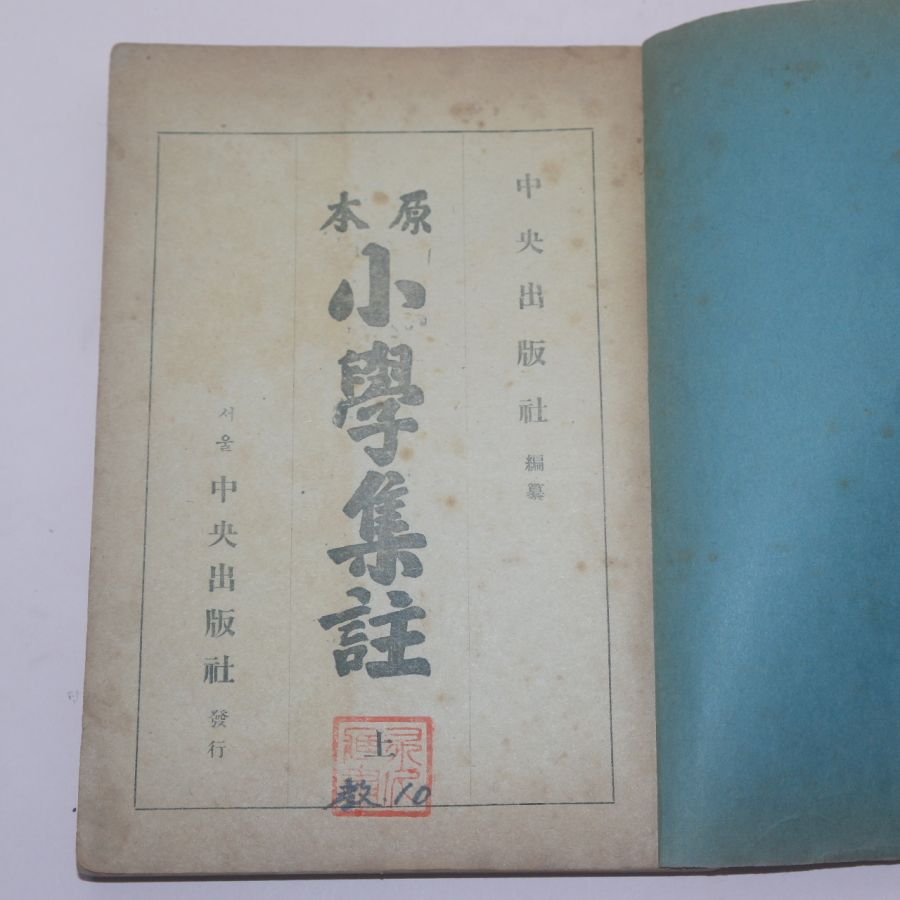 中央出版社 編纂
原本
小學集註
上
教 10
서울 中央出版社 發行